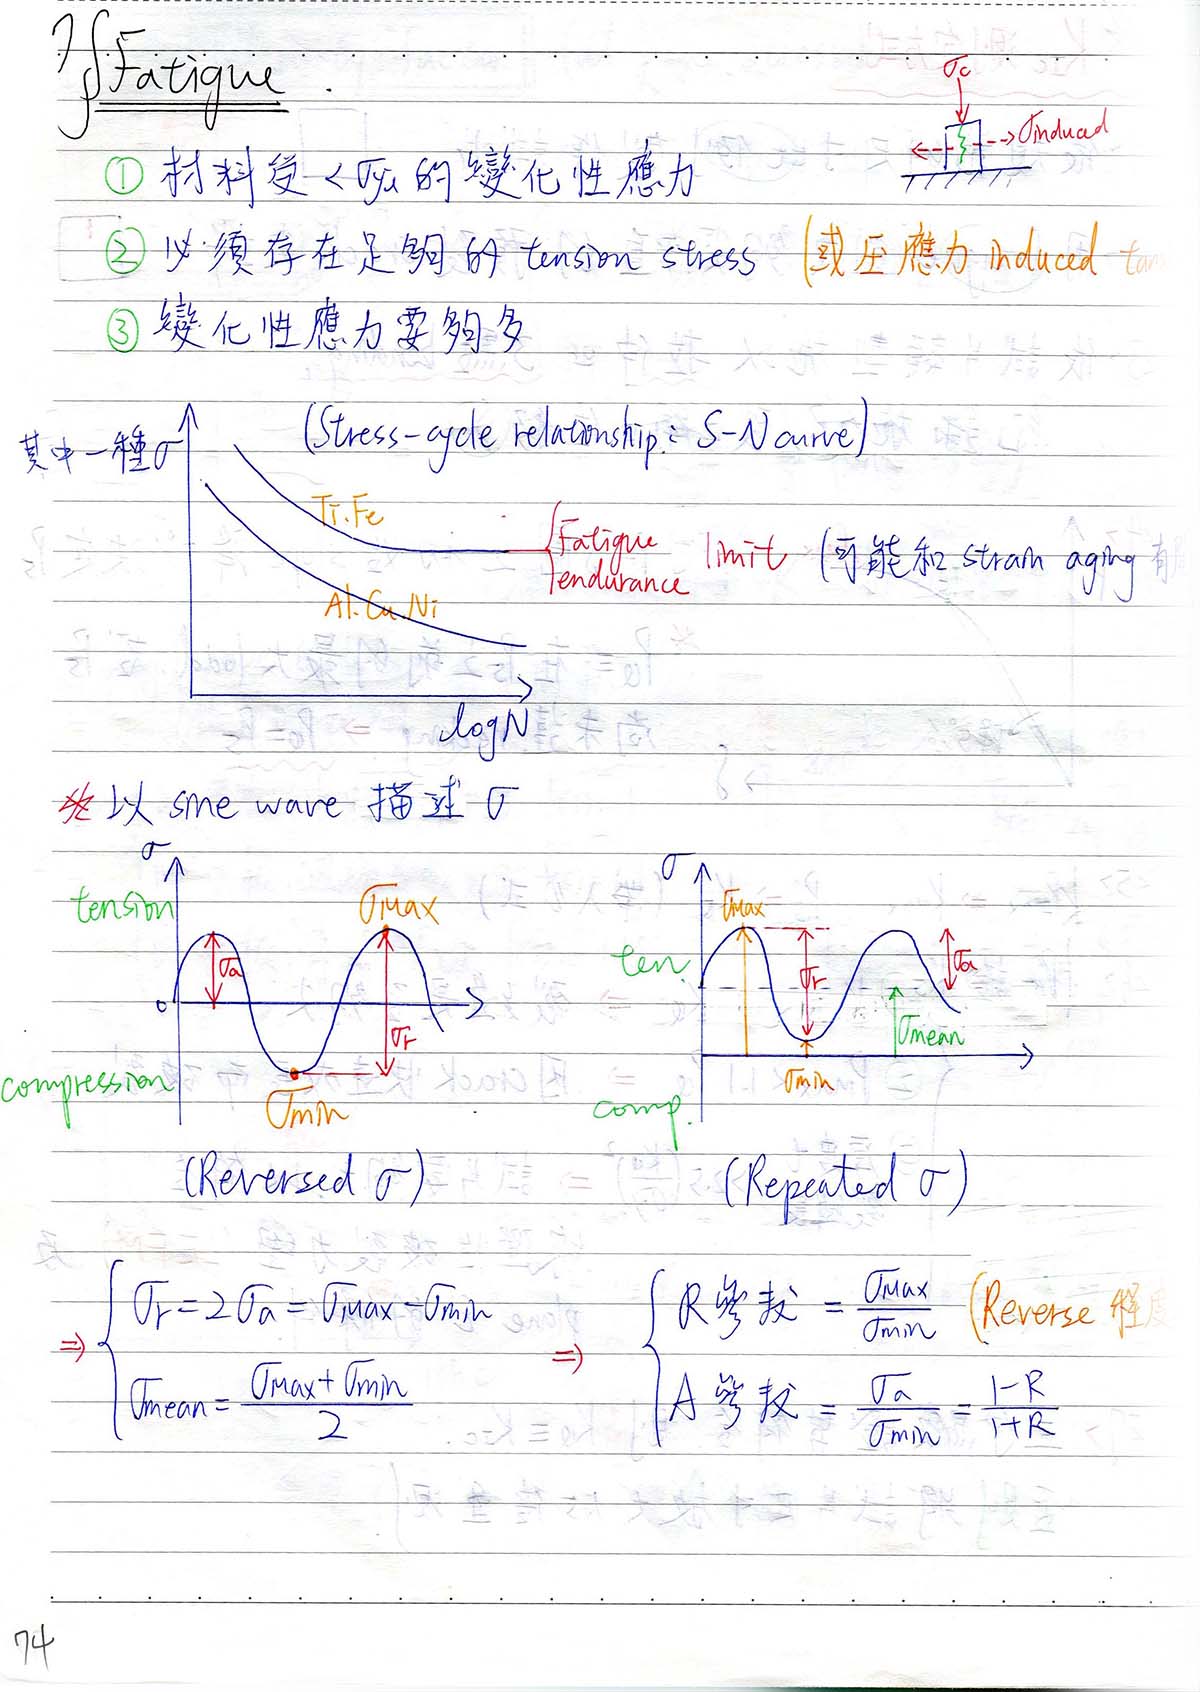 7
§Fatigue
σc
σinduced
① 材料受 < σys 的變化性應力
② 必須存在足夠的 tension stress (或压應力 induced
③ 變化性應力要夠多
(Stress-cycle relationship: S-N curve)
其中一種σ
Ti.Fe
Al.Cu.Ni
Fatigue
endurance
limit (可能和 strain aging 有
logN
※ 以 sine wave 描述 σ
σ
tension
σa
σMax
0
σr
compression
σmin
(Reversed σ)
σ
σMax
ten.
σr
σa
σmean
σmin
comp.
(Repeated σ)
⇒ σr = 2σa = σMax - σmin
σmean = (σMax + σmin)/2
⇒ R參数 = σMax/σmin (Reverse 程度
A參数 = σa/σmin = (1-R)/(1+R)
74